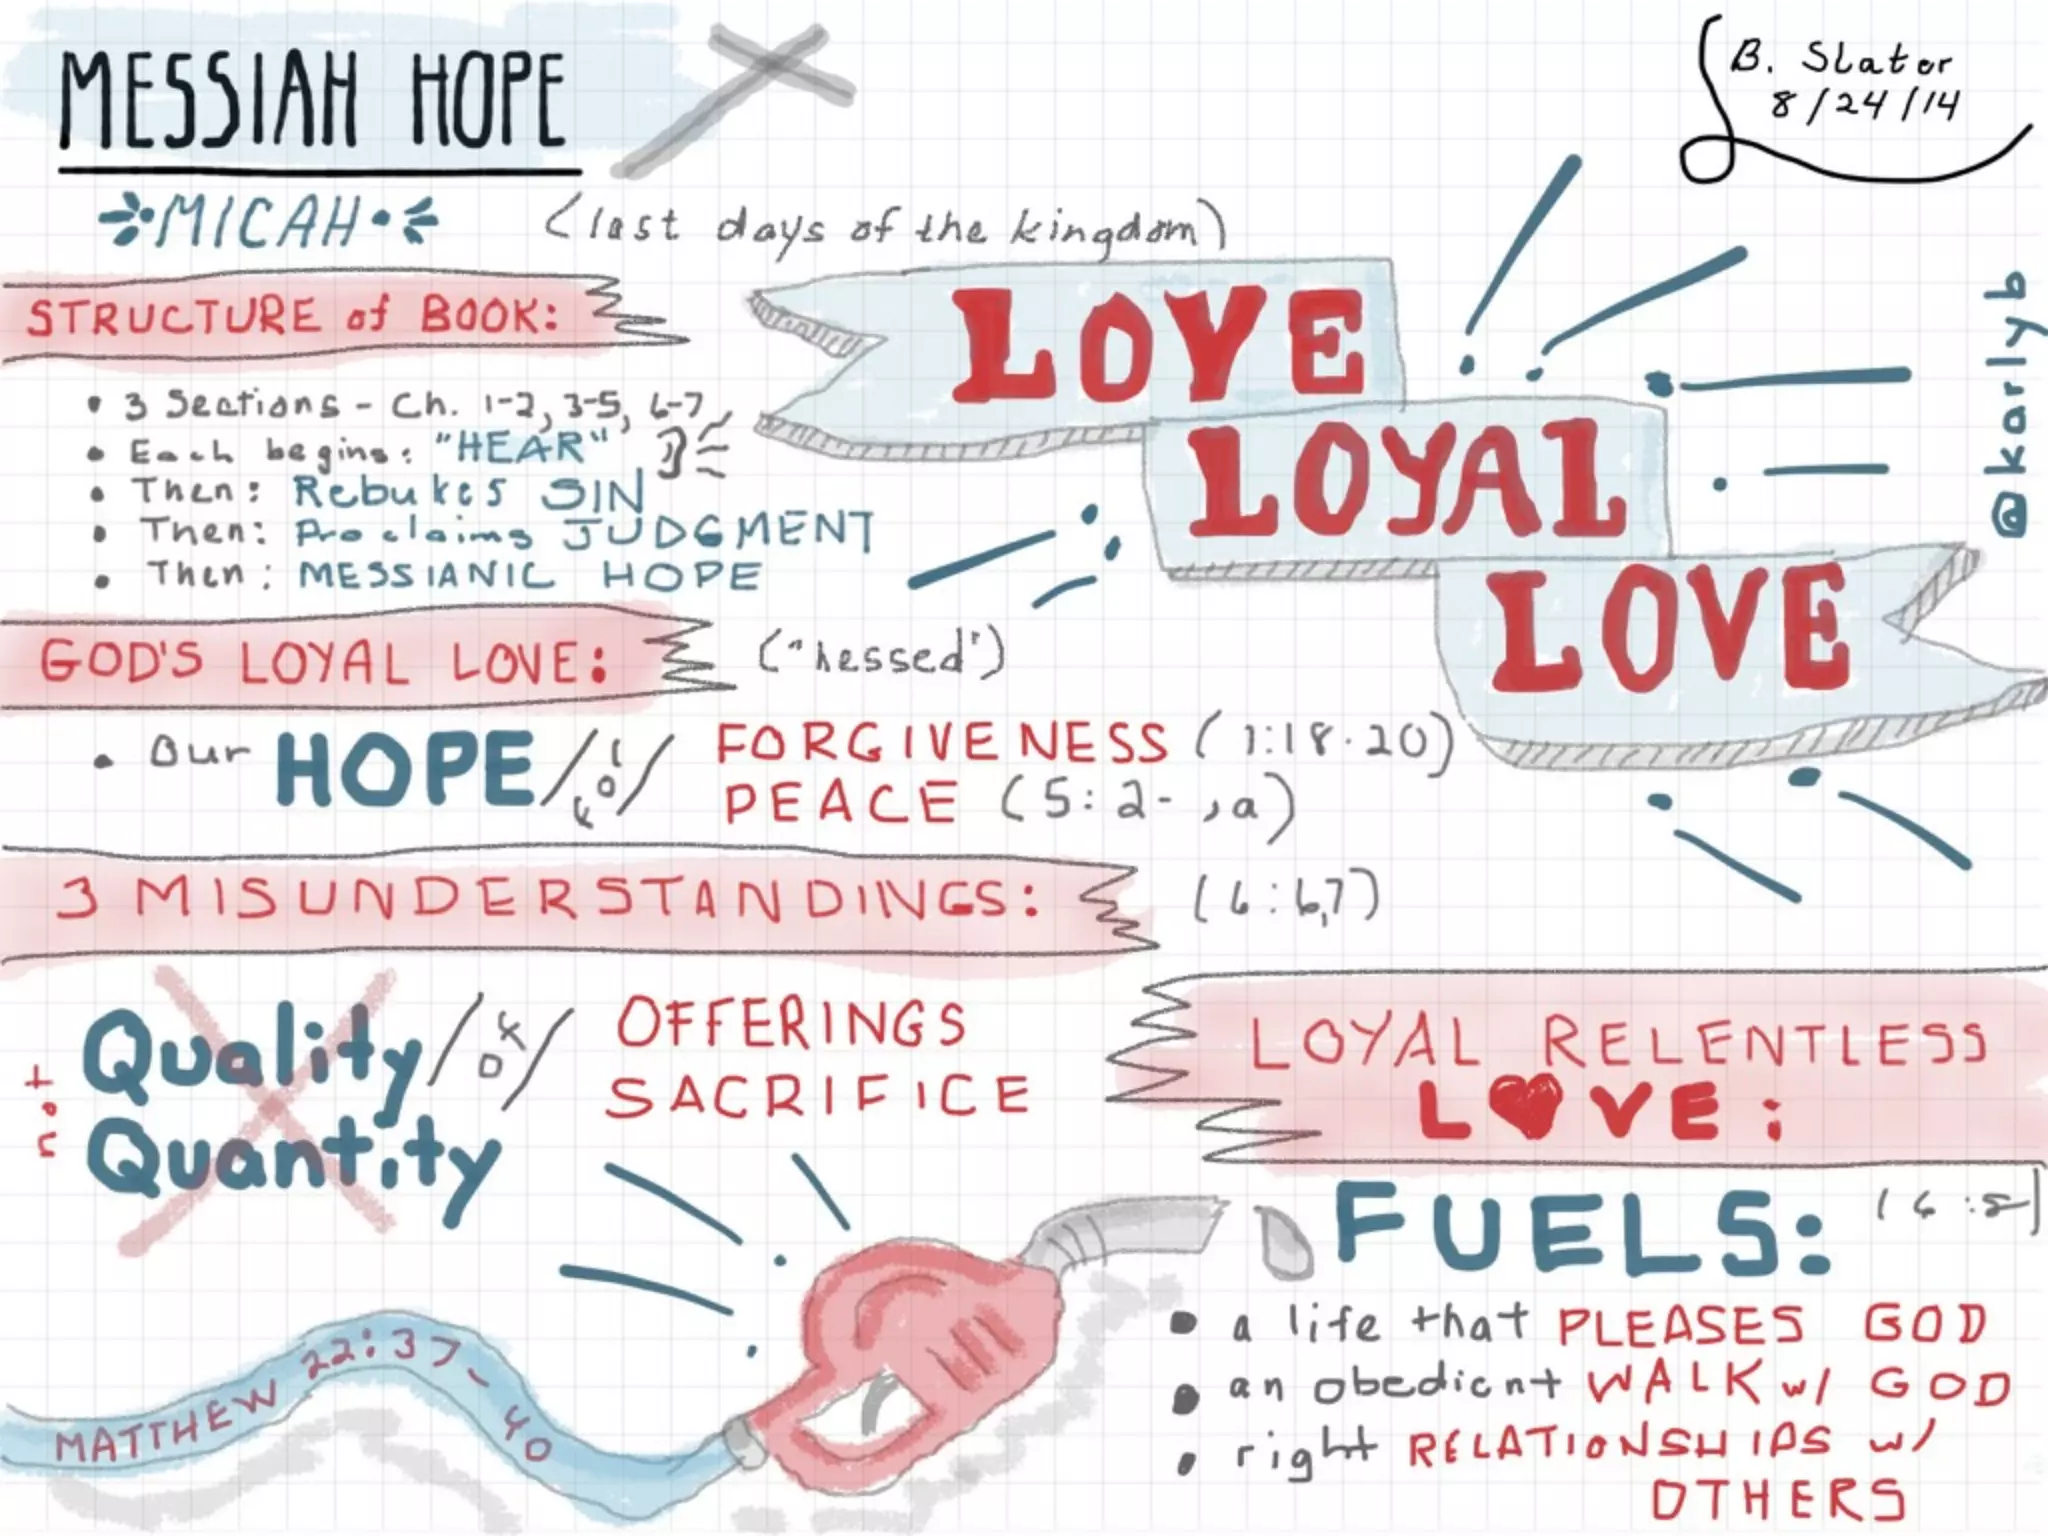 MESSIAH HOPE
B. Slater
8/24/14
MICAH
(last days of the kingdom)
@karlyb
LOVE
LOYAL
LOVE
STRUCTURE of BOOK:
• 3 Sections - Ch. 1-2, 3-5, 6-7
• Each begins: "HEAR"
• Then: Rebukes SIN
• Then: Proclaims JUDGMENT
• Then: MESSIANIC HOPE
GOD'S LOYAL LOVE: ("hessed")
• Our HOPE / of / FORGIVENESS (7:18-20)
PEACE (5:2-
3 MISUNDERSTANDINGS: (6:6,7)
not
Quality / of / OFFERINGS
Quantity SACRIFICE
LOYAL RELENTLESS
LOVE:
FUELS: (6:8)
• a life that PLEASES GOD
• an obedient WALK w/ GOD
• right RELATIONSHIPS w/
OTHERS
MATTHEW 22:37-40